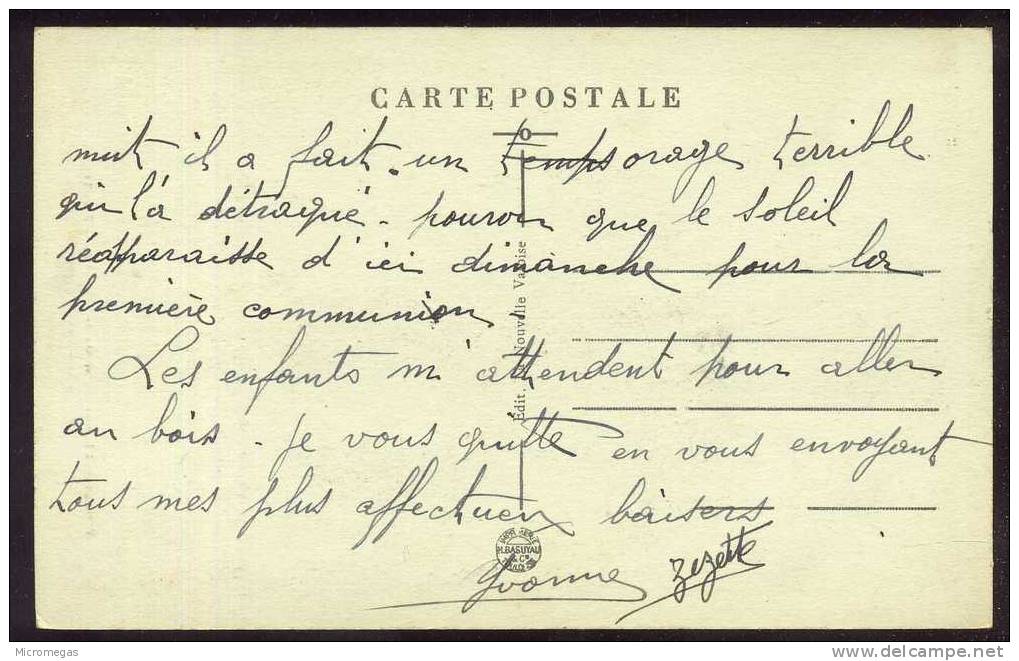 CARTE POSTALE
nuit il a fait un temps orage terrible
qui l'a détraqué. pourvu que le soleil
réapparaisse d'ici dimanche pour la
première communion.
Les enfants m'attendent pour aller
au bois. Je vous quitte en vous envoyant
tous mes plus affectueux baisers
Yvonne Zezette
Édit. Nouvelle Valoise
H.BASUYAU
& Cie
Micromegas
delcampe.net